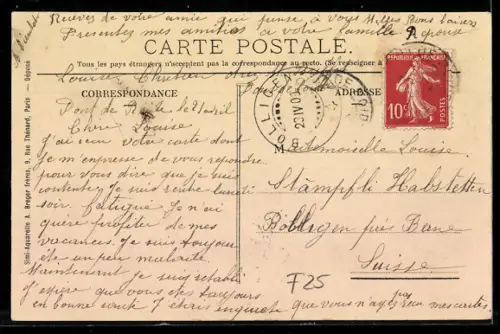 Recevez de votre amie qui pense à vous Milles Bons baisers
Presentez mes amitiés a votre famille Reponse
CARTE POSTALE.
Tous les pays étrangers n'acceptent pas la correspondance au recto. (Se renseigner à
CORRESPONDANCE
ADRESSE
RÉPUBLIQUE FRANÇAISE
10c
POSTES
BOLLIGEN
Louise Chretien
Pont de le 21 avril
Chère Louise
J'ai reçu votre carte dont
je m'empresse de vous repondre
pour vous dire que je suis
contente, Je suis rentré lundi
soir fatigué Je n'ai
guère profiter de mes
vacances. Je suis toujours
été un peu malade
Maintenant je suis rétabli
J'espère que vous êtes toujours
en bonne santé
que vous n'avez pas mes cartes
Mademoiselle Louise
Stämpfli Habstetten
Bolligen près Berne
Suisse
F25
Simi-Aquarelle A. Breger frères, 9, Rue Thénard, Paris — Déposé